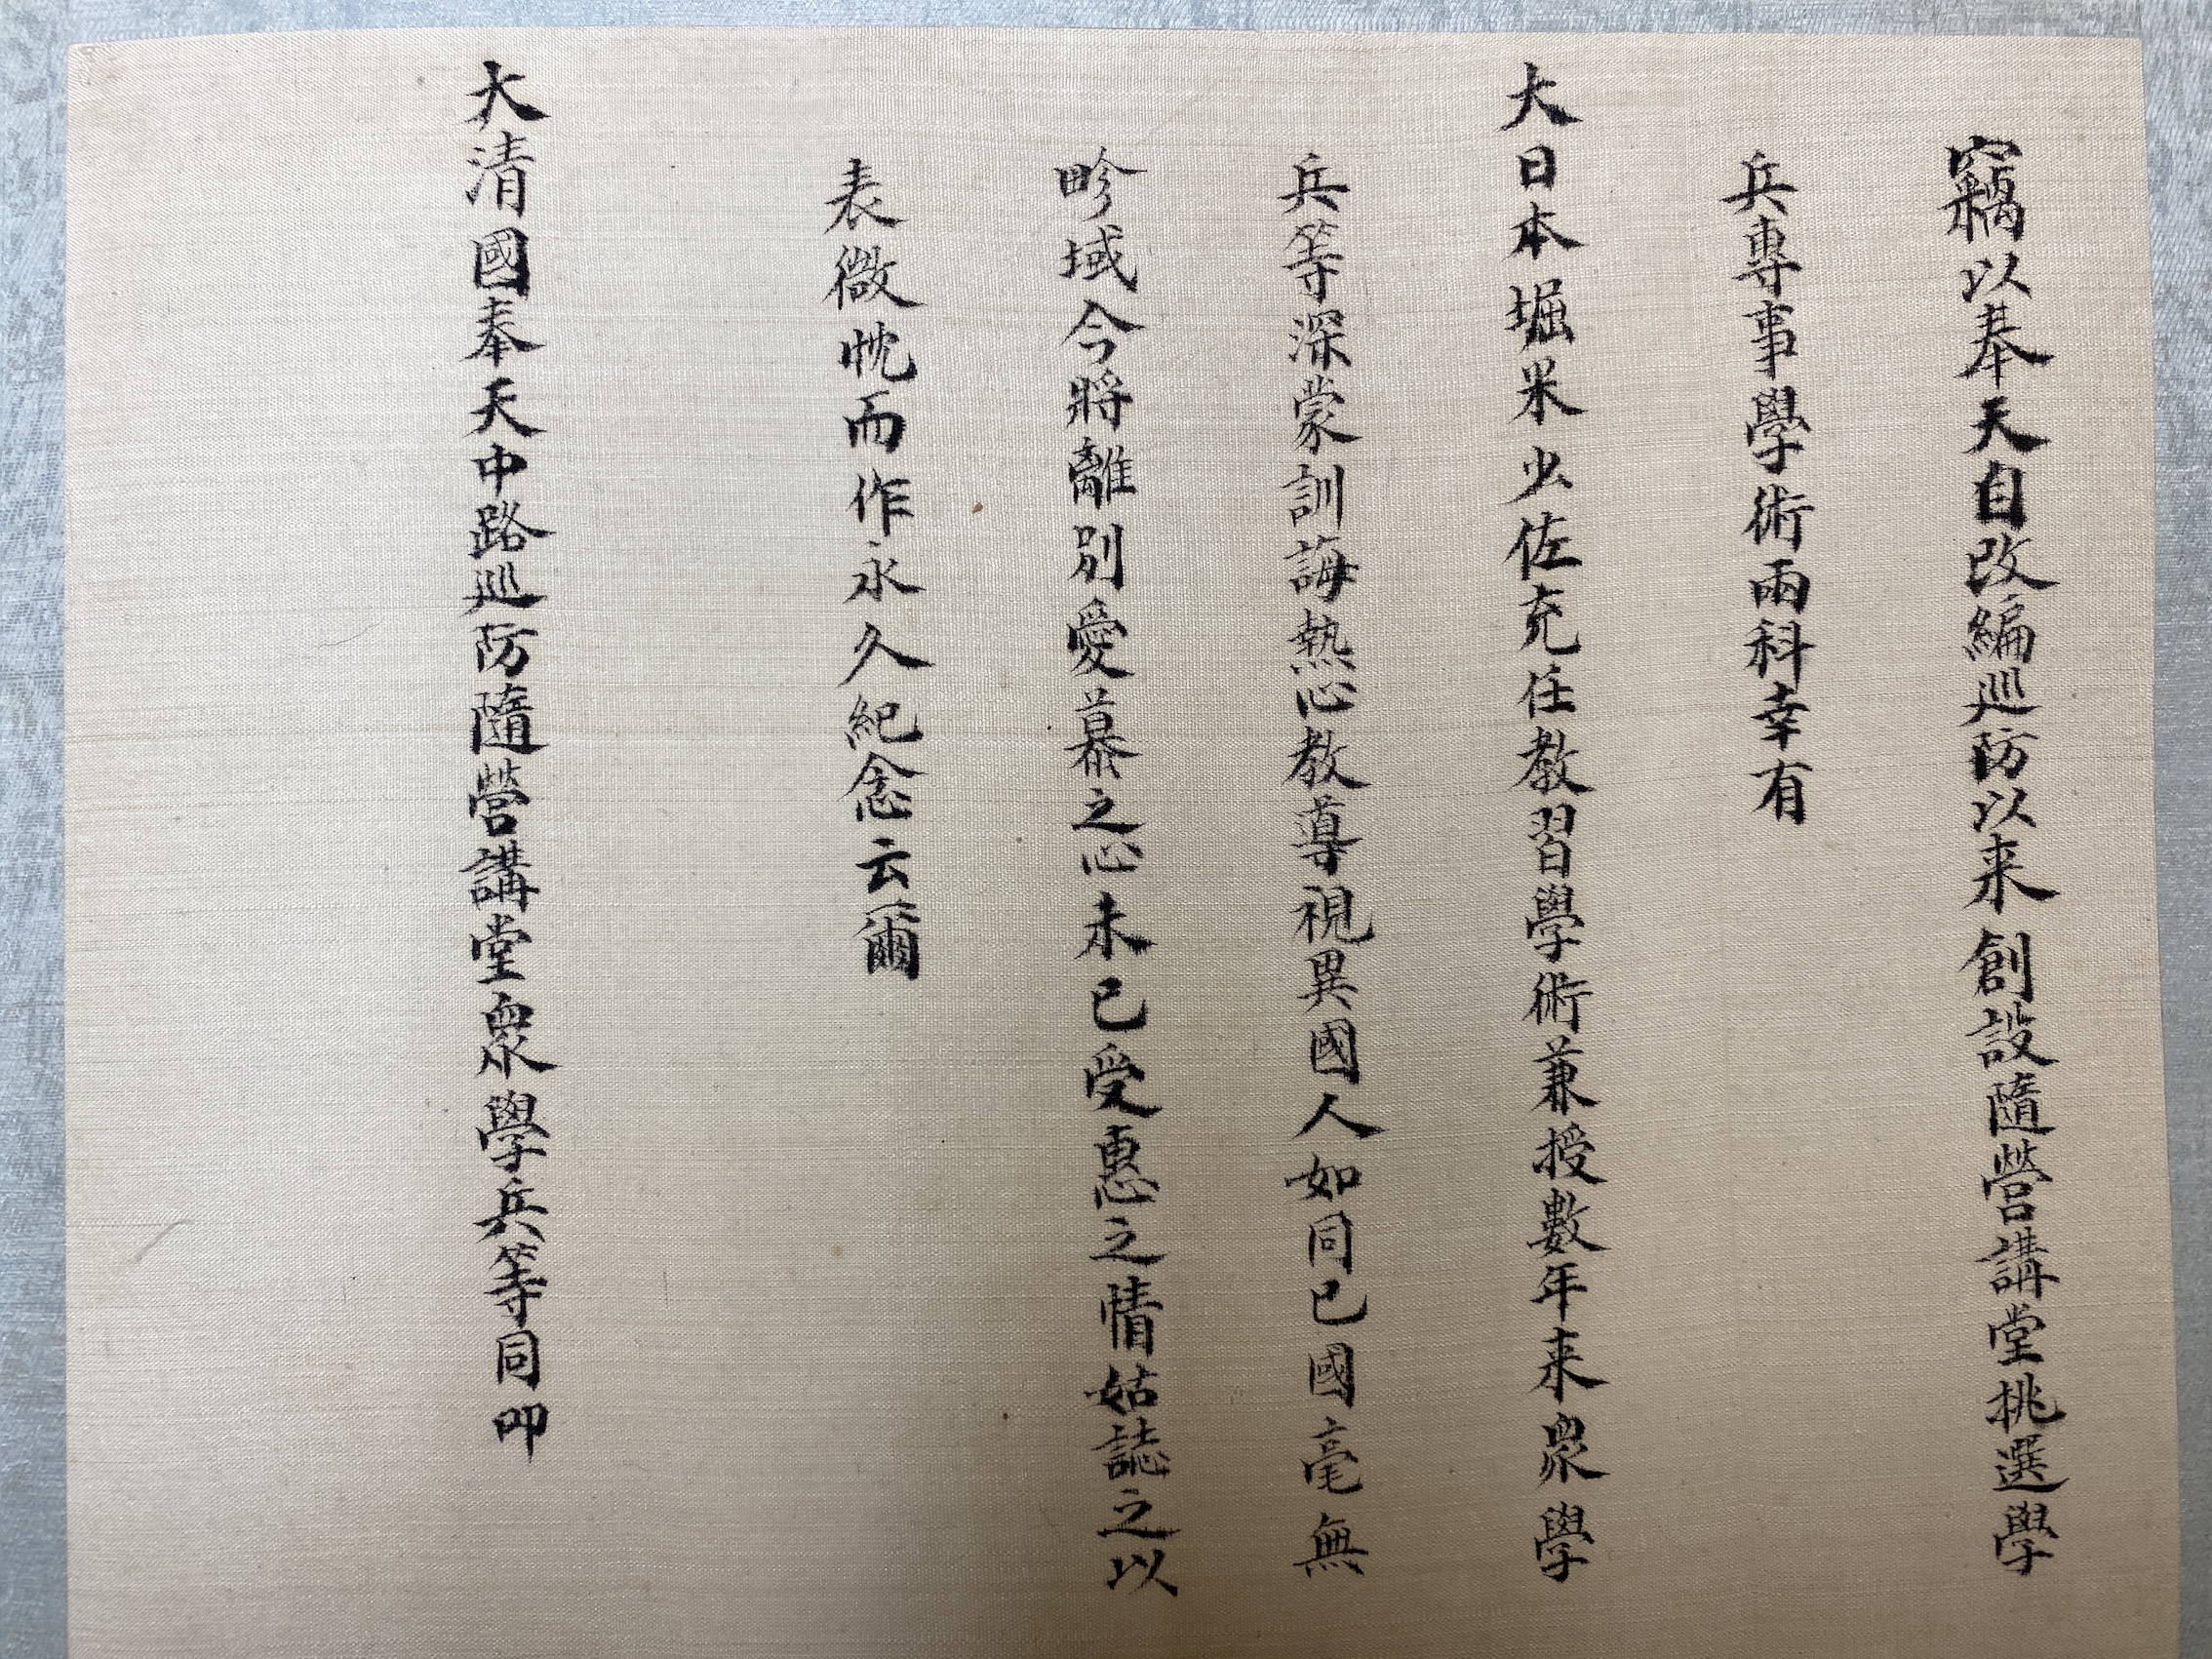 竊以奉天自改編巡防以来創設隨營講堂挑選學
兵專事學術兩科幸有
大日本堀米少佐充任教習學術兼授數年来衆學
兵等深蒙訓誨熱心教導視異國人如同已國毫無
畛域今將離別愛慕之心未已受惠之情姑誌之以
表微忱而作永久紀念云爾
大清國奉天中路巡防隨營講堂衆學兵等同叩